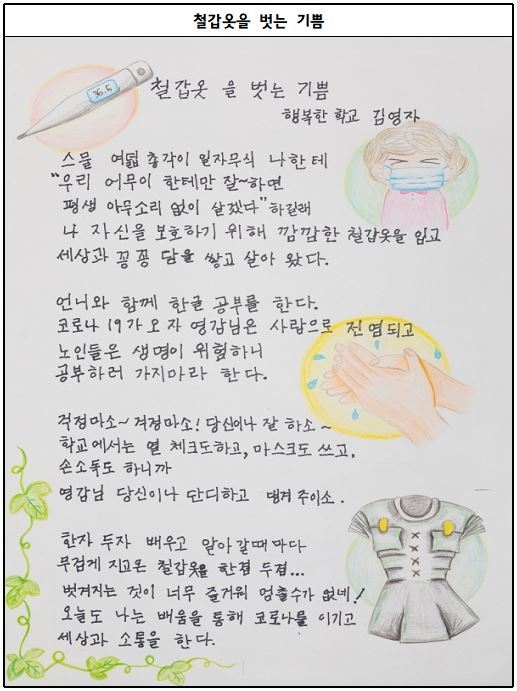 철갑옷을 벗는 기쁨
36.5
철갑옷 을 벗는 기쁨
행복한 학교 김영자
스물 여덟 총각이 일자무식 나한테
"우리 어무이 한테만 잘~하면
평생 아무소리 없이 살겠다" 하길래
나 자신을 보호하기 위해 깜깜한 철갑옷을 입고
세상과 꽁꽁 담을 쌓고 살아 왔다.
언니와 함께 한글 공부를 한다.
코로나 19가 오자 영감님은 사람으로 전염되고
노인들은 생명이 위험하니
공부하러 가지마라 한다.
걱정마소~ 걱정마소! 당신이나 잘 하소~
학교에서는 열 체크도하고, 마스크도 쓰고,
손소독도 하니까
영감님 당신이나 단디하고 댕겨 주이소.
한자 두자 배우고 알아 갈때 마다
무겁게 지고온 철갑옷을 한겹 두겹...
벗겨지는 것이 너무 즐거워 멈출수가 없네!
오늘도 나는 배움을 통해 코로나를 이기고
세상과 소통을 한다.